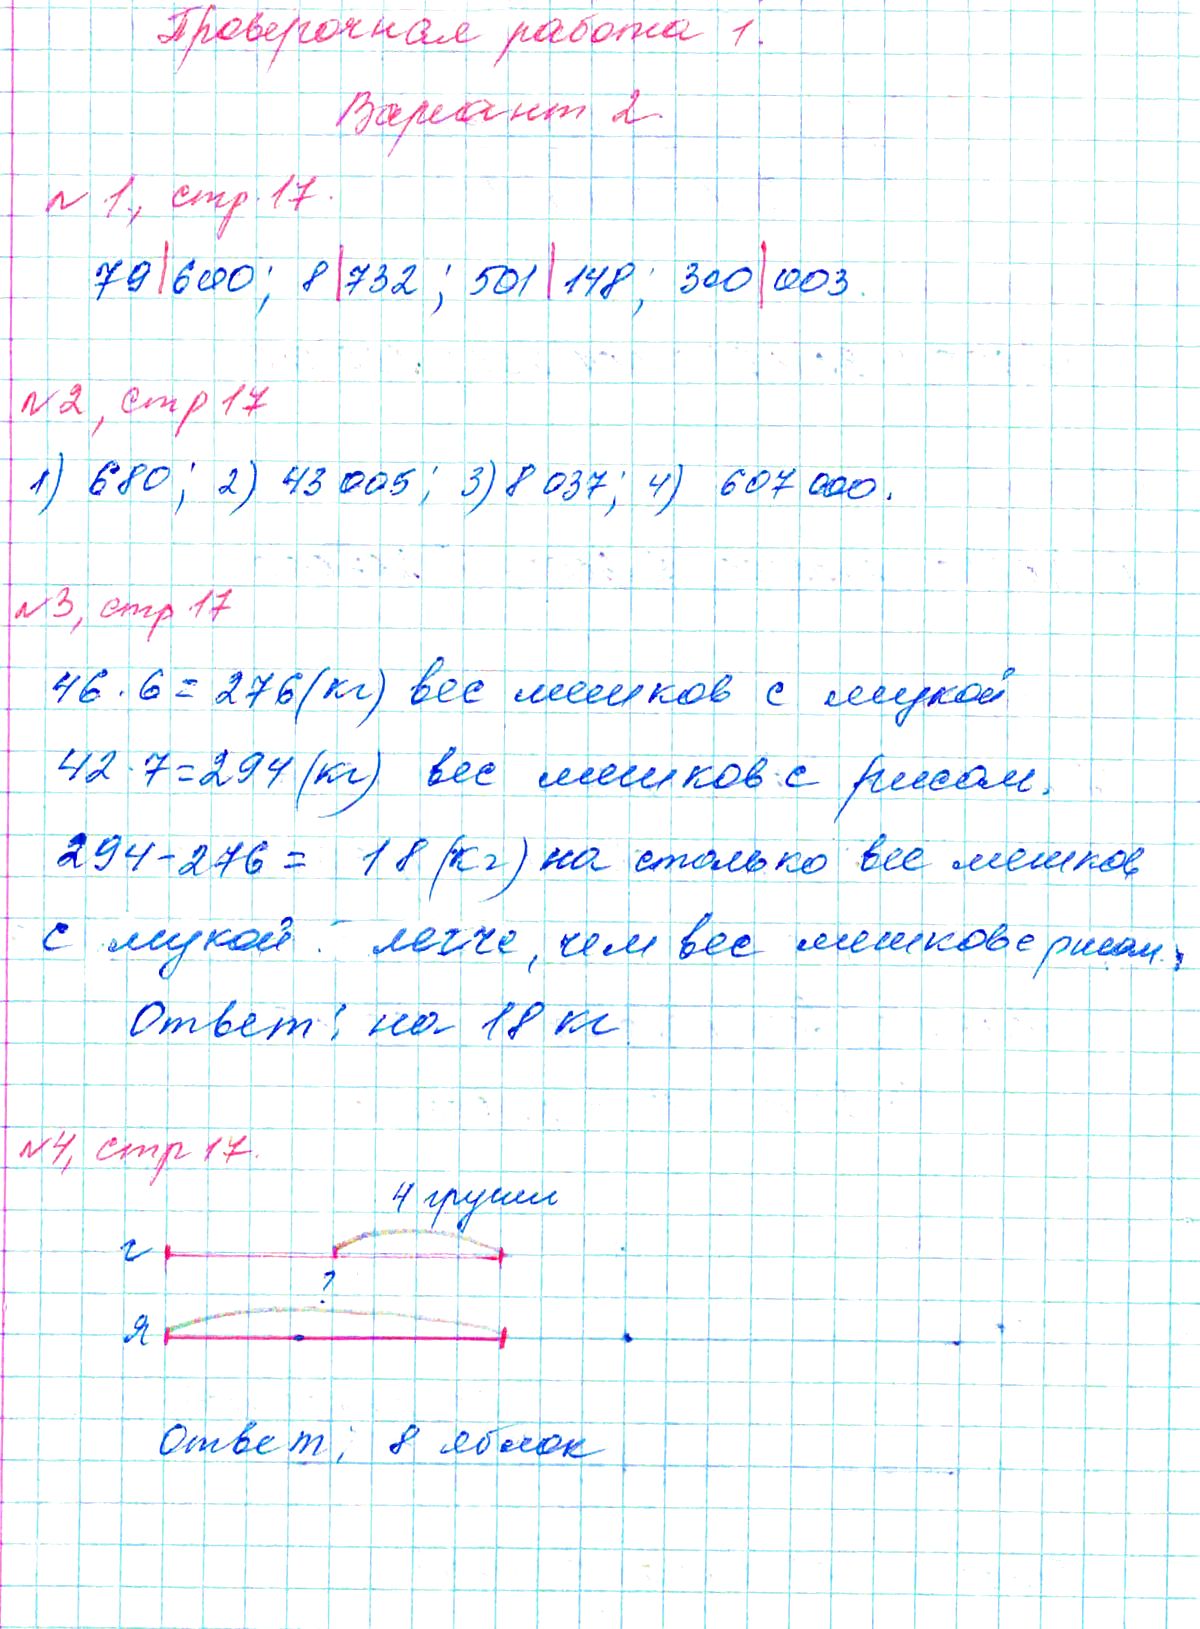 Проверочная работа 1.
Вариант 2.
№ 1, стр. 17.
79|600; 8|732; 501|148; 300|003.
№2, стр 17
1) 680; 2) 43 005; 3) 8 037; 4) 607 000.
№3, стр 17
46·6=276(кг) вес мешков с мукой
42·7=294(кг) вес мешков с рисом.
294-276= 18(кг) на столько вес мешков
с мукой легче, чем вес мешков с рисом.
Ответ: на 18 кг
№4, стр 17.
4 груши
г
?
Я
Ответ: 8 яблок